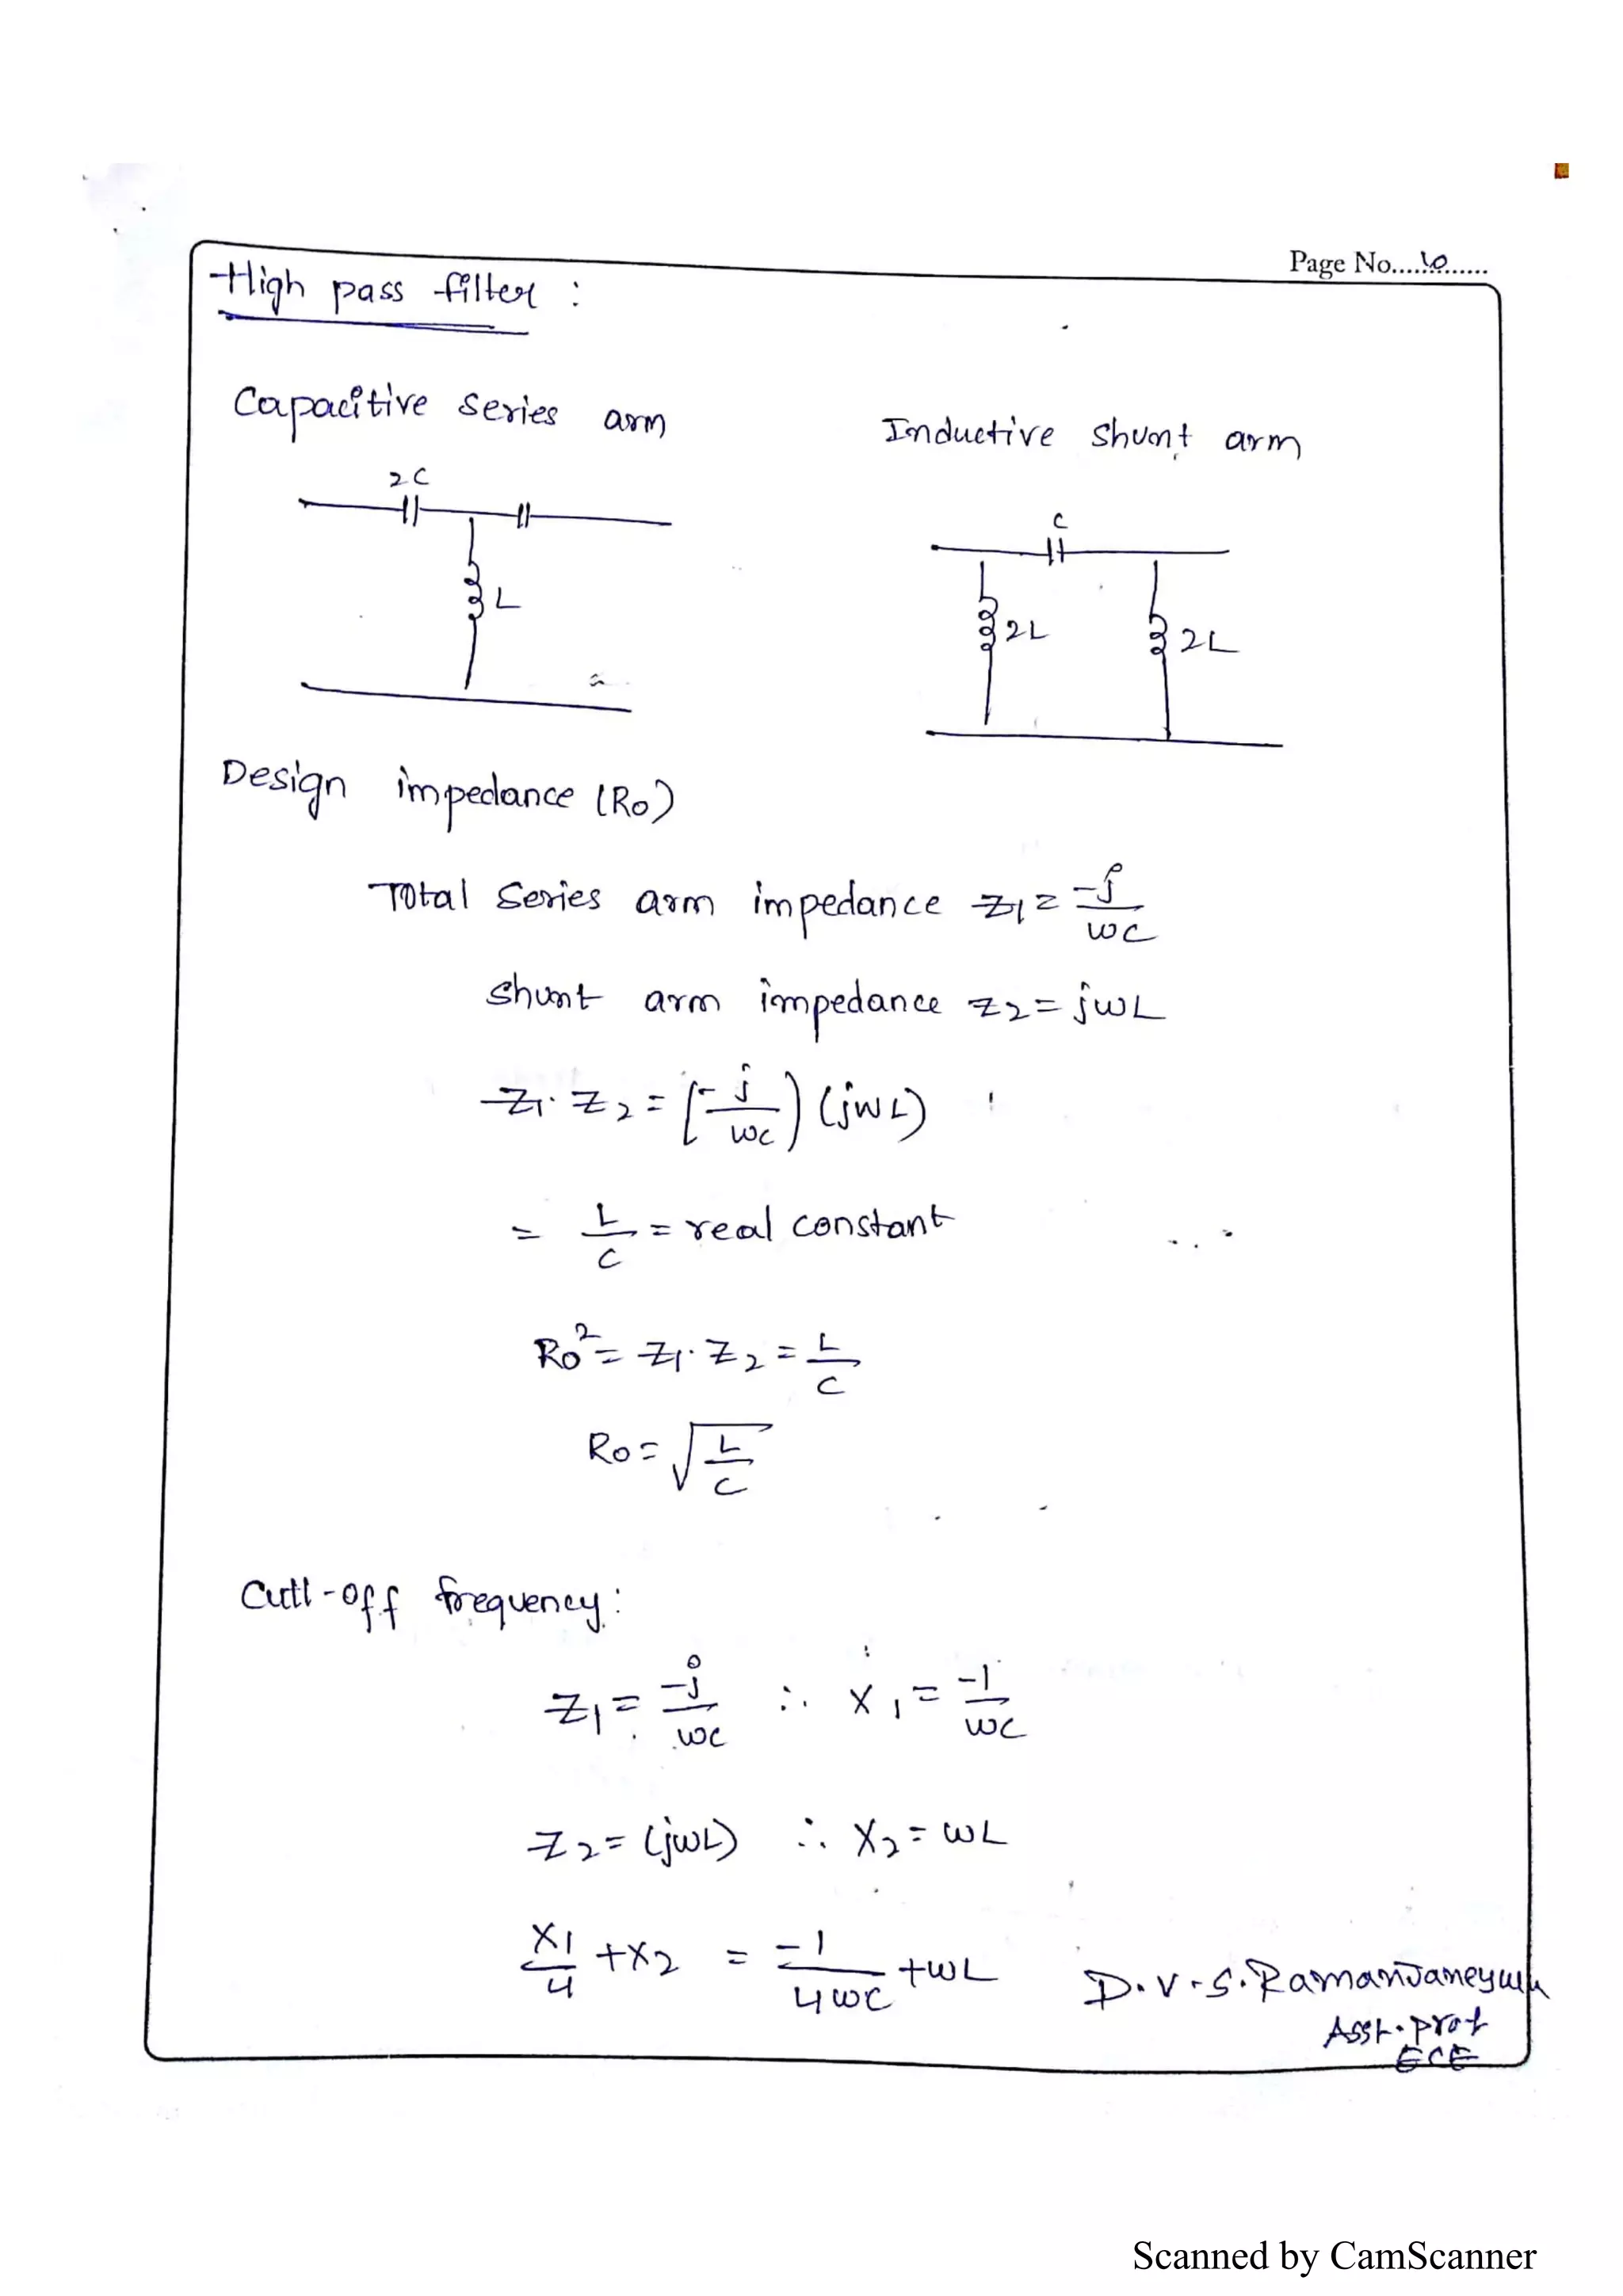 Page No......10.......
High pass filter :
Capacitive series arm
Inductive shunt arm
2C
L
C
2L
2L
Design impedance (Ro)
Total Series arm impedance Z1 = -j/wc
Shunt arm impedance Z2 = jwL
Z1. Z2 = [-j/wc) (jwL)
= L/C = real constant
Ro² = Z1. Z2 = L/C
Ro = √L/C
Cutl-off frequency:
Z1 = -j/wc ∴ X1 = -1/wc
Z2 = (jwL) ∴ X2 = wL
X1/4 + X2 = -1/4wc + wL
D.V.S.Ramanjaneyulu
Asst. prof
ECE
Scanned by CamScanner